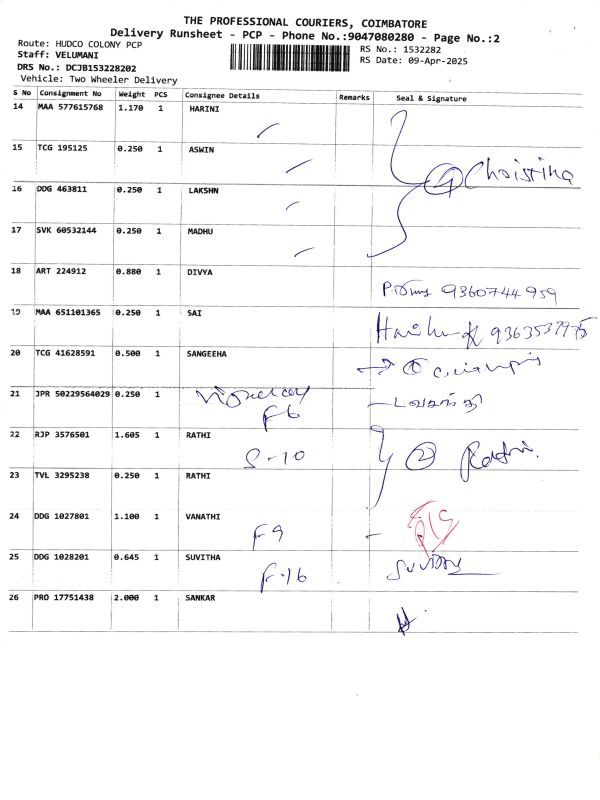 THE PROFESSIONAL COURIERS, COIMBATORE
Delivery Runsheet - PCP - Phone No.:9047080280 - Page No.:2
Route: HUDCO COLONY PCP
RS No.: 1532282
Staff: VELUMANI
RS Date: 09-Apr-2025
DRS No.: DCJB153228202
Vehicle: Two Wheeler Delivery
S No Consignment No Weight PCS Consignee Details Remarks Seal & Signature
14 MAA 577615768 1.170 1 HARINI
15 TCG 195125 0.250 1 ASWIN
④ Christina
16 DDG 463811 0.250 1 LAKSHN
17 SVK 60532144 0.250 1 MADHU
18 ART 224912 0.880 1 DIVYA
9360744959
19 MAA 651101365 0.250 1 SAI
20 TCG 41628591 0.500 1 SANGEEHA
21 JPR 50229564029 0.250 1
F6
22 RJP 3576501 1.605 1 RATHI
S-10 ② Rathi.
23 TVL 3295238 0.250 1 RATHI
24 DDG 1027801 1.100 1 VANATHI
F9
25 DDG 1028201 0.645 1 SUVITHA
F-16
26 PRO 17751438 2.000 1 SANKAR